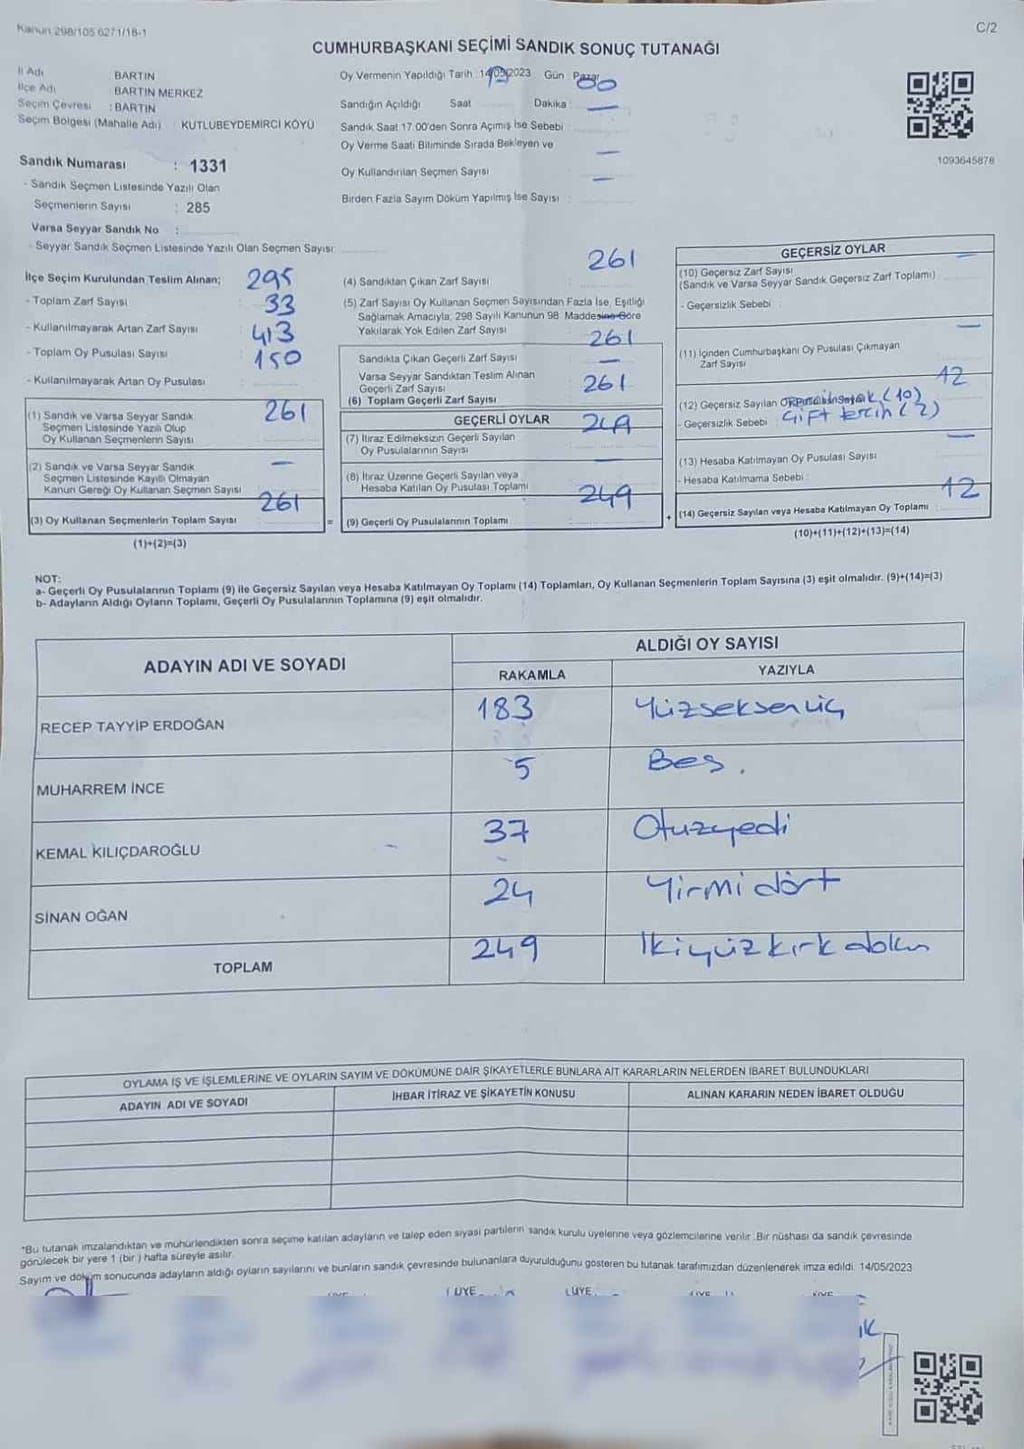 Kanun 298/105 6271/18-1
C/2
CUMHURBAŞKANI SEÇİMİ SANDIK SONUÇ TUTANAĞI
İl Adı BARTIN
İlçe Adı BARTIN MERKEZ
Seçim Çevresi : BARTIN
Seçim Bölgesi (Mahalle Adı) KUTLUBEYDEMİRCİ KÖYÜ
Sandık Numarası : 1331
- Sandık Seçmen Listesinde Yazılı Olan
Seçmenlerin Sayısı : 285
Varsa Seyyar Sandık No :
- Seyyar Sandık Seçmen Listesinde Yazılı Olan Seçmen Sayısı:
Oy Vermenin Yapıldığı Tarih 14/05/2023 Gün Pazar
Sandığın Açıldığı Saat Dakika : 00
Sandık Saat 17:00'den Sonra Açımış İse Sebebi : —
Oy Verme Saati Bitiminde Sırada Bekleyen ve
Oy Kullandırılan Seçmen Sayısı —
Birden Fazla Sayım Döküm Yapılmış İse Sayısı —
1093645878
İlçe Seçim Kurulundan Teslim Alınan;
- Toplam Zarf Sayısı 295
- Kullanılmayarak Artan Zarf Sayısı 33
- Toplam Oy Pusulası Sayısı 413
- Kullanılmayarak Artan Oy Pusulası 150
(1) Sandık ve Varsa Seyyar Sandık
Seçmen Listesinde Yazılı Olup
Oy Kullanan Seçmenlerin Sayısı 261
(2) Sandık ve Varsa Seyyar Sandık
Seçmen Listesinde Kayıtlı Olmayan
Kanun Gereği Oy Kullanan Seçmen Sayısı —
(3) Oy Kullanan Seçmenlerin Toplam Sayısı 261
(1)+(2)=(3)
(4) Sandıktan Çıkan Zarf Sayısı 261
(5) Zarf Sayısı Oy Kullanan Seçmen Sayısından Fazla İse, Eşitliği
Sağlamak Amacıyla, 298 Sayılı Kanunun 98 Maddesine Göre
Yakılarak Yok Edilen Zarf Sayısı —
Sandıkta Çıkan Geçerli Zarf Sayısı 261
Varsa Seyyar Sandıktan Teslim Alınan
Geçerli Zarf Sayısı —
(6) Toplam Geçerli Zarf Sayısı 261
GEÇERLİ OYLAR
(7) İtiraz Edilmeksizin Geçerli Sayılan
Oy Pusulalarının Sayısı 249
(8) İtiraz Üzerine Geçerli Sayılan veya
Hesaba Katılan Oy Pusulası Toplamı —
= (9) Geçerli Oy Pusulalarının Toplamı 249
GEÇERSİZ OYLAR
(10) Geçersiz Zarf Sayısı
(Sandık ve Varsa Seyyar Sandık Geçersiz Zarf Toplamı) : —
- Geçersizlik Sebebi :
(11) İçinden Cumhurbaşkanı Oy Pusulası Çıkmayan
Zarf Sayısı —
(12) Geçersiz Sayılan Oy Pusulası Sayısı 12
(10)
- Geçersizlik Sebebi Çift tercih (2)
(13) Hesaba Katılmayan Oy Pusulası Sayısı —
- Hesaba Katılmama Sebebi :
+ (14) Geçersiz Sayılan veya Hesaba Katılmayan Oy Toplamı 12
(10)+(11)+(12)+(13)=(14)
NOT:
a- Geçerli Oy Pusulalarının Toplamı (9) ile Geçersiz Sayılan veya Hesaba Katılmayan Oy Toplamı (14) Toplamları, Oy Kullanan Seçmenlerin Toplam Sayısına (3) eşit olmalıdır. (9)+(14)=(3)
b- Adayların Aldığı Oyların Toplamı, Geçerli Oy Pusulalarının Toplamına (9) eşit olmalıdır.
ADAYIN ADI VE SOYADI ALDIĞI OY SAYISI
RAKAMLA YAZIYLA
RECEP TAYYİP ERDOĞAN 183 Yüzseksenüç
MUHARREM İNCE 5 Beş.
KEMAL KILIÇDAROĞLU 37 Otuzyedi
SİNAN OĞAN 24 Yirmidört
TOPLAM 249 İkiyüzkırkdokuz
OYLAMA İŞ VE İŞLEMLERİNE VE OYLARIN SAYIM VE DÖKÜMÜNE DAİR ŞİKAYETLERLE BUNLARA AİT KARARLARIN NELERDEN İBARET BULUNDUKLARI
ADAYIN ADI VE SOYADI İHBAR İTİRAZ VE ŞİKAYETİN KONUSU ALINAN KARARIN NEDEN İBARET OLDUĞU
*Bu tutanak imzalandıktan ve mühürlendikten sonra seçime katılan adayların ve talep eden siyasi partilerin sandık kurulu üyelerine veya gözlemcilerine verilir. Bir nüshası da sandık çevresinde
görülecek bir yere 1 (bir ) hafta süreyle asılır.
Sayım ve döküm sonucunda adayların aldığı oyların sayılarını ve bunların sandık çevresinde bulunanlara duyurulduğunu gösteren bu tutanak tarafımızdan düzenlenerek imza edildi. 14/05/2023
ÜYE ÜYE ÜYE ÜYE ÜYE